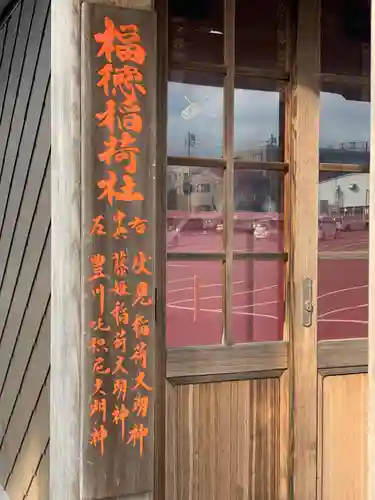 福徳稲荷社
右 伏見稲荷大明神
藤姫稲荷大明神
左 豊川吒枳尼大明神